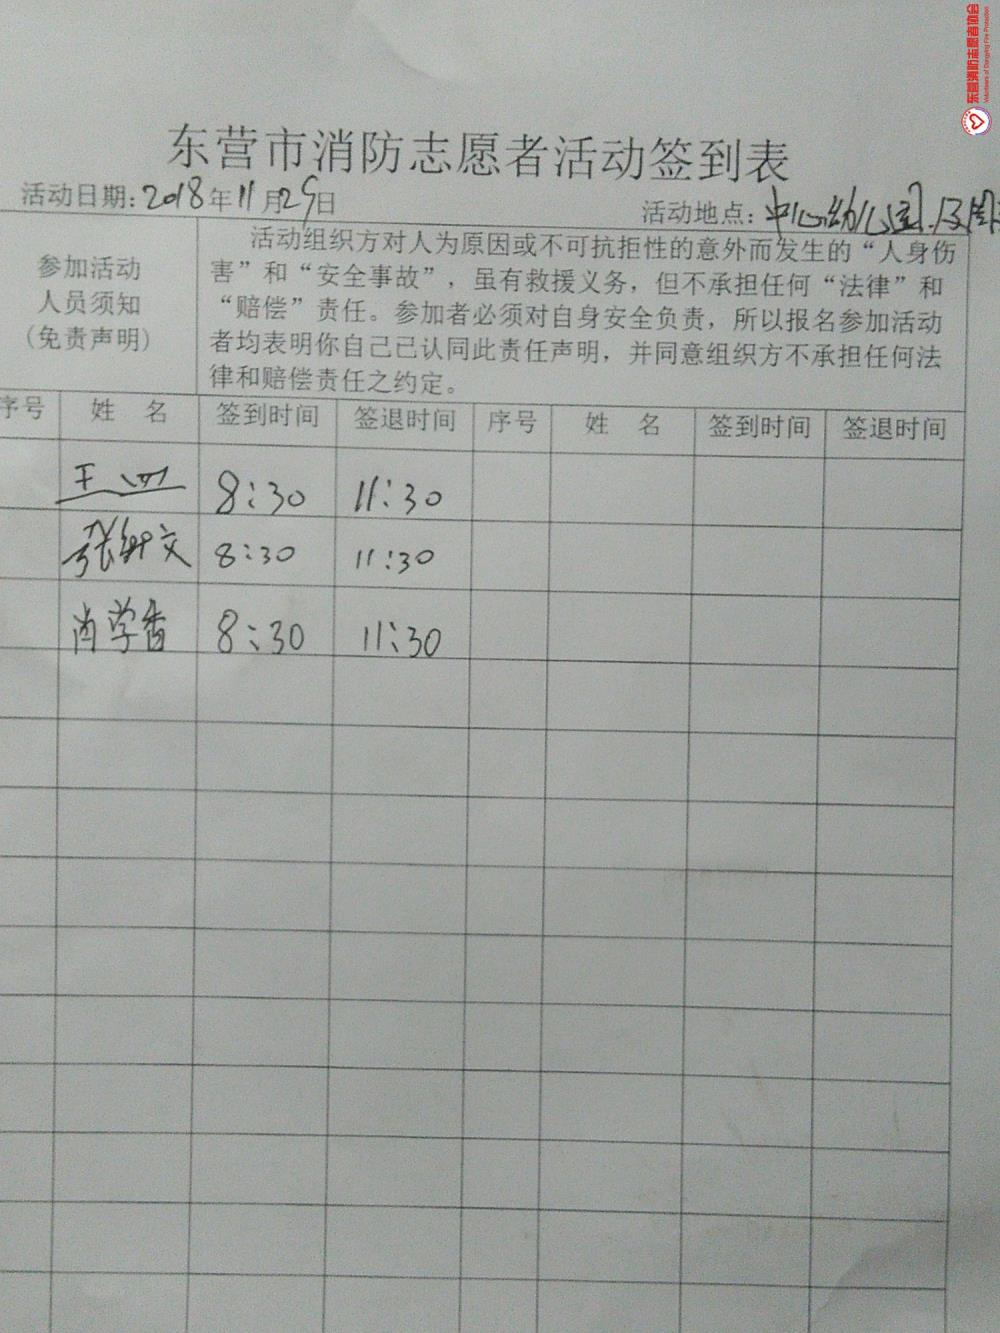 东营消防志愿者协会
Volunteers of Dongying Fire Protection
东营市消防志愿者活动签到表
活动日期：2018年11月29日 活动地点：中心幼儿园及周
参加活动
人员须知
（免责声明）
活动组织方对人为原因或不可抗拒性的意外而发生的“人身伤
害”和“安全事故”，虽有救援义务，但不承担任何“法律”和
“赔偿”责任。参加者必须对自身安全负责，所以报名参加活动
者均表明你自己已认同此责任声明，并同意组织方不承担任何法
律和赔偿责任之约定。
序号 姓 名 签到时间 签退时间 序号 姓 名 签到时间 签退时间
王 8:30 11:30
张 文 8:30 11:30
肖学香 8:30 11:30